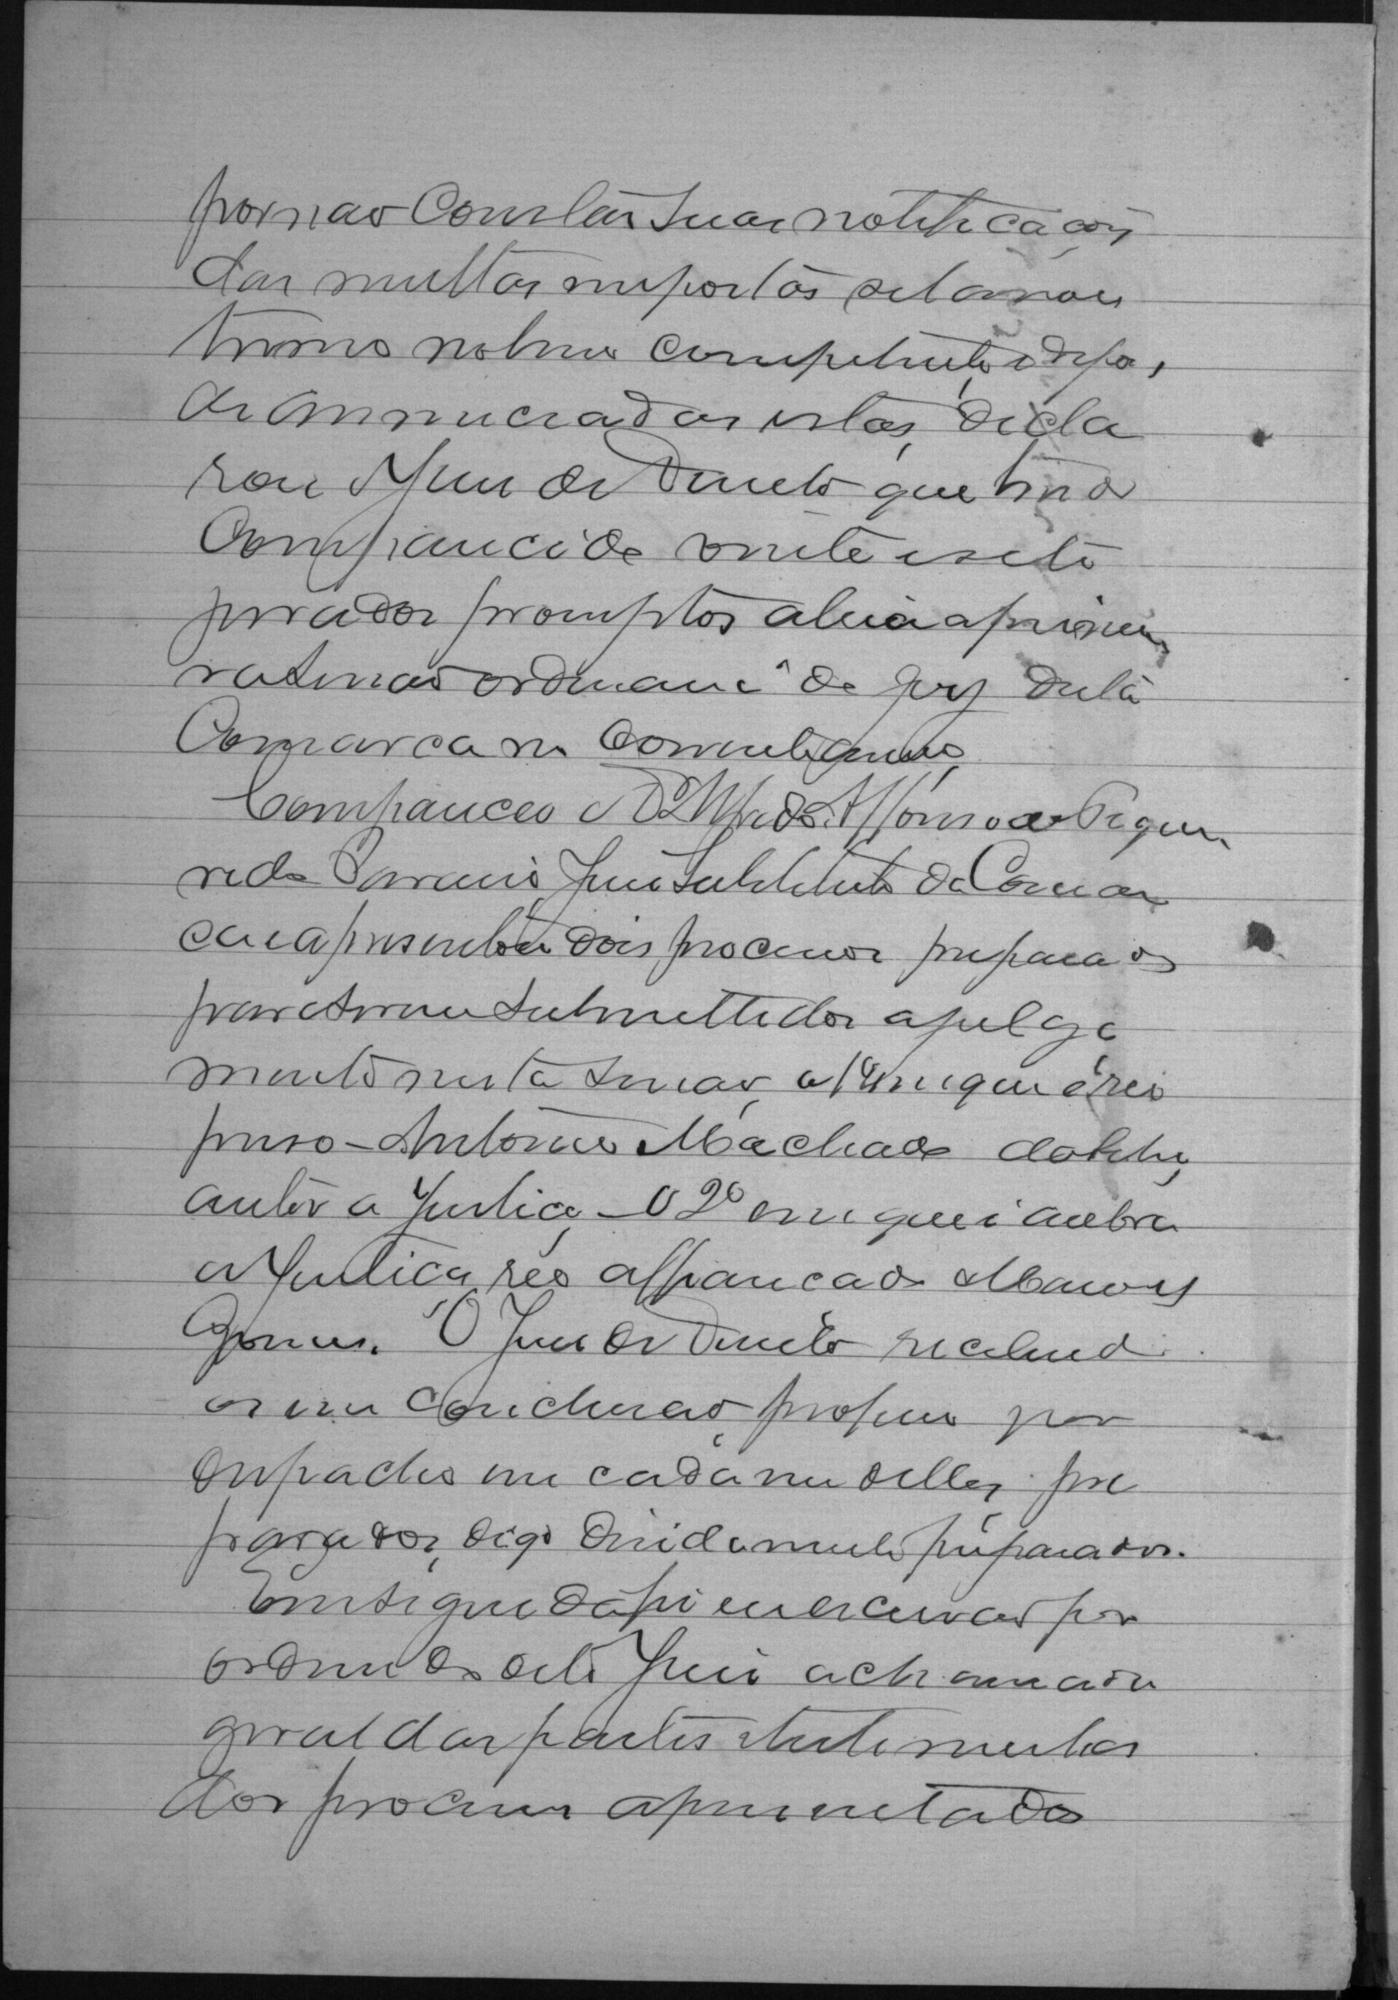 por nao Constar suas notificações
das multas impostas se lavrou
termo no livro competente e depois,
de annunciadas estas, decla
rou o Juiz de Direito que tendo
Comparecido vinte e sete
jurados promptos abria a primei
ra sessão ordinaria do jury desta
Comarca no corrente anno
Compareceo o Dr. Alfredo Affonso de Figuei
redo Juiz Substituto da Comar
ca e apresentou dois processos preparados
para serem submettidos a julga
mento nesta sessão, o 1º em que é reo
preso - Antonio Machado
autor a Justiça - O 2º em que é autora
a Justiça, réo affiançado Manoel
Gomes. O Juiz de Direito recebendo
os em conclusão, profirio por
despacho em cada um delles, pre
parados, digo devidamente preparados.
Em seguida foi
ordem do dito Juiz a chamada
geral das partes e testemunhas
dos processos apresentados